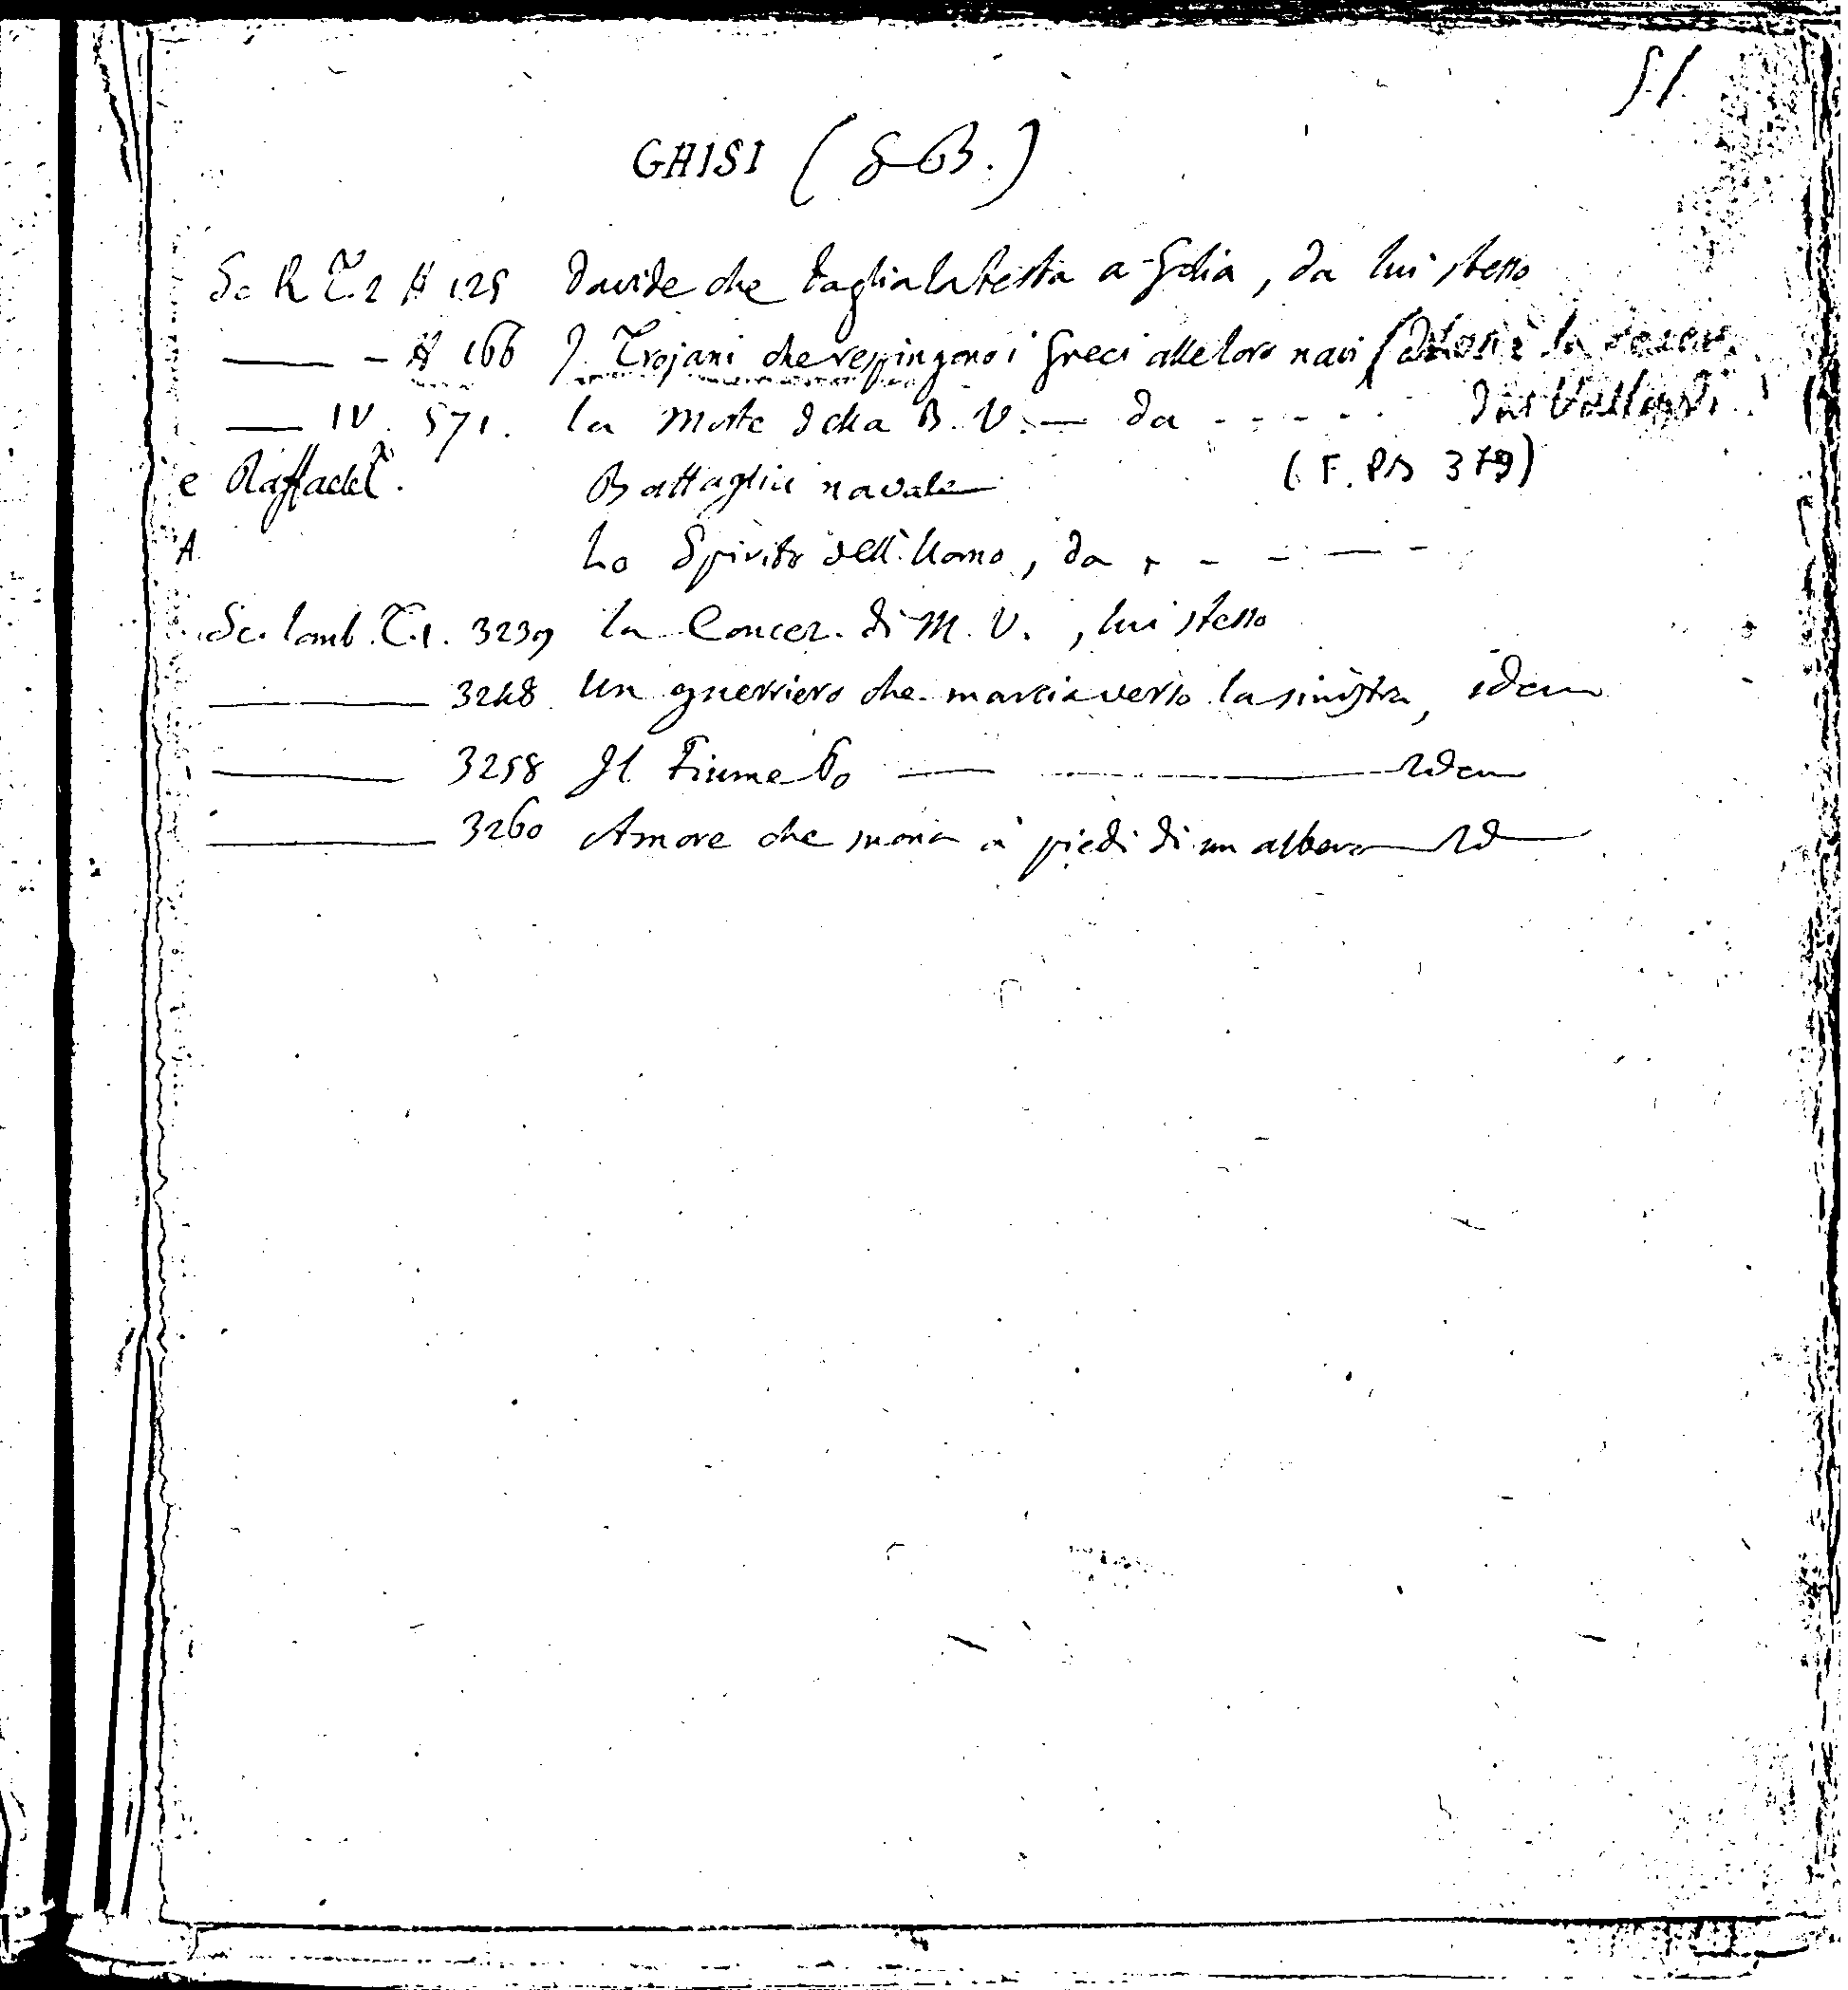 51
GHISI (G B.)
Sc R T. 2 A 125 Davide che taglia la testa a Golia, da lui stesso
— - A 166 I Trojani che respingono i Greci alle loro navi
— IV. 571. la Morte della B. V. — da - - - - - Vallardi
e Raffael. Battaglia navale (F. PB 379)
A Lo Spirito dell'Uomo, da - - - — -
Sc. lomb. T. 1. 3239 la Concez. di M. V. , lui stesso
— 3248 Un guerriero che marcia verso la sinistra, idem
— 3258 Il Fiume Po — — idem
— 3260 Amore che suona a piedi di un albero — Id